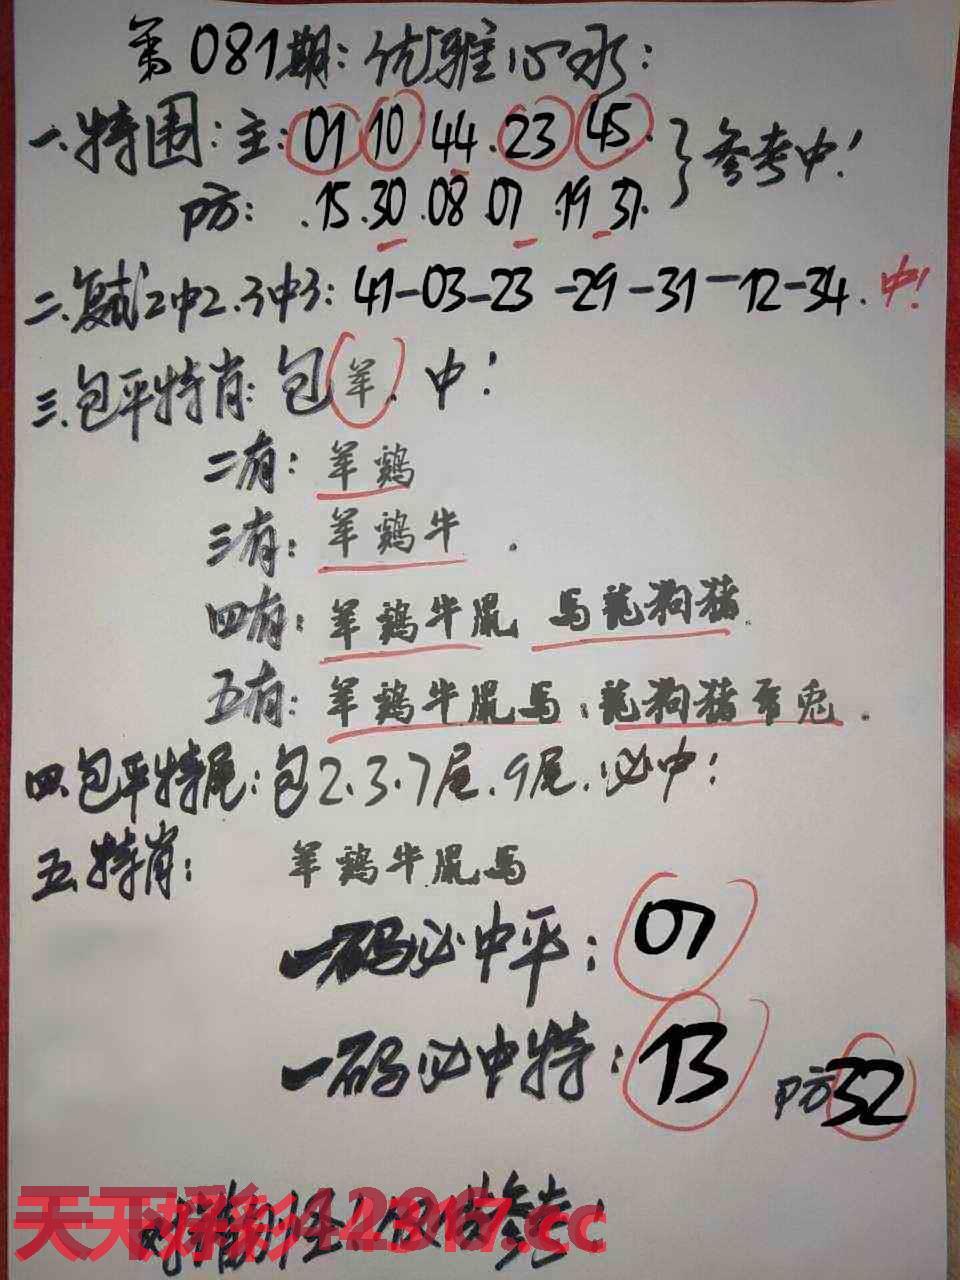 第081期：优雅心水：
一.特围：主：01 10.44.23 45. 参考中！
防：.15.30.08.07.19.31.
二.复试2中2.3中3：41-03-23-29-31-12-34.中！
三.包平特肖：包羊.中！
二有：羊鸡
三有：羊鸡牛.
四有：羊鸡牛鼠 馬龍狗猪
五有：羊鸡牛鼠馬：龍狗猪 兎.
四.包平特尾：包2.3.7尾.9尾.必中！
五.特肖： 羊鸡牛鼠馬
一码必中平：07
一码必中特：13 防32
天下彩 .cc
参